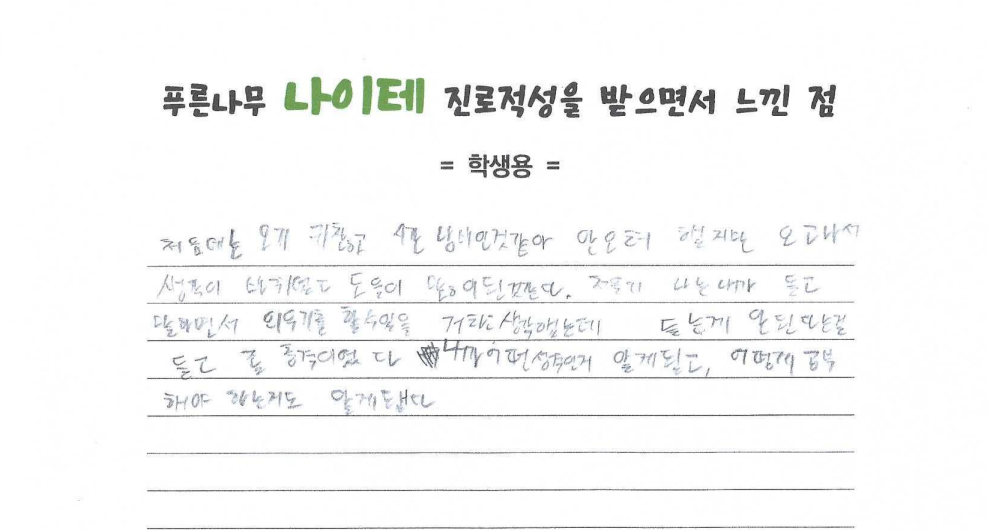 푸른나무 나이테 진로적성을 받으면서 느낀 점
= 학생용 =
처음에는 오기 귀찮고 시간 낭비인것같아 안오려 했지만 오고나서
생각이 바뀌었고 도움이 많이 된것같다. 나는 내가 듣고
말하면서 외우기를 할수있을 거라 생각했는데 듣는게 안된다는걸
듣고 좀 충격이였다 내가 어떤성격인지 알게되었고, 어떻게 공부
해야 하는지도 알게됐다